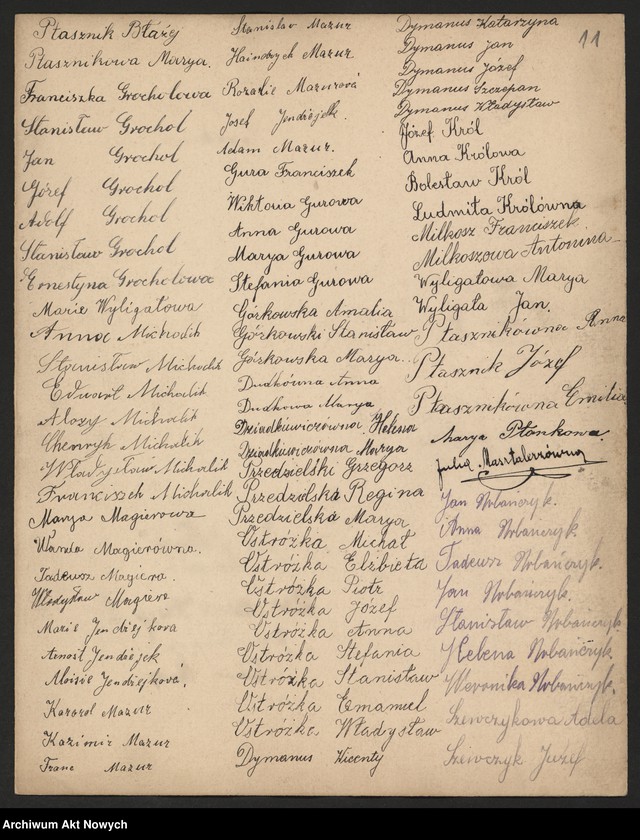 Ptasznik Błażej
Ptasznikowa Marya.
Franciszka Grocholowa
Stanisław Grochol
Jan Grochol
Józef Grochol
Adolf Grochol
Stanisław Grochol
Ernestyna Grocholowa
Marie Wyligałowa
Anna Michalik
Stanisław Michalik
Eduart Michalik
Alozy Michalik
Chenryk Michalik
Władysław Michalik
Franciszek Michalik
Marya Magierowa
Wanda Magierówna.
Tadeusz Magiera.
Władysław Magiera
Marie Jendriejkova
Arnost Jendrejek
Aloisie Jendrejková.
Karorol Mazur
Kazimir Mazur
Franc Mazur
Stanislav Mazur
Haindrych Mazur
Rozalie Mazurová
Josef Jendrejek.
Adam Mazur.
Gura Franciszek
Wiktoria Gurowa
Anna Gurowa
Marya Gurowa
Stefania Gurowa
Górkowska Amalia
Górkowski Stanisław
Górkowska Marya.
Dudkówna Anna
Dudkowa Marya
Dziadkiewiczówna Helena
Dziadkiewiczówna Marya
Przedzielski Grzegorz
Przedzelska Regina
Przedzielska Marya
Ustróżka Michał
Ustróżka Elżbieta
Ustróżka Piotr
Ustróżka Józef
Ustróżka Anna
Ustróżka Stefania
Ustróżka Stanisław
Ustróżka Emanuel
Ustróżka Władysław
Dymanus Wicenty
Dymanus Katarzyna
Dymanus Jan
Dymanus Józef
Dymanus Szczepan
Dymanus Władysław
Józef Król
Anna Królowa
Bolesław Król
Ludmiła Królówna
Milkosz Franciszek
Milkoszowa Antonina
Wyligałowa Marya
Wyligała Jan.
Ptasznikówna Anna
Ptasznik Józef
Ptasznikówna Emilia
Marya Płonkowa.
Julia Marstalerzówna
Jan Nobańczyk.
Anna Nobańczyk.
Tadeusz Nobańczyk.
Jan Nobańczyk.
Stanisław Nobańczyk.
Helena Nobańczyk.
Weronika Nobańczyk.
Szewczykowa Adela
Szewczyk Juzef
11
Archiwum Akt Nowych